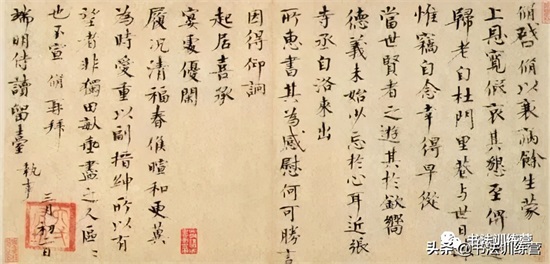 脩啓脩以衰病餘生蒙
上恩寬假哀其懇至俾
歸老自杜門里巷与世日
惟竊自念幸得早從
當世賢者之遊其於欽嚮
德義未始少忘於心耳近張
寺丞自洛來出
所惠書其為感慰何可勝言
因得仰詢
起居喜承
宴處優閑
履況清福春候暄和更冀
為時愛重以副搢紳所以有
望者非獨田畝垂盡之人區〻
也不宣脩再拜
端明侍讀留臺執事
三月初二日
书法训练营
头条@书法训练营